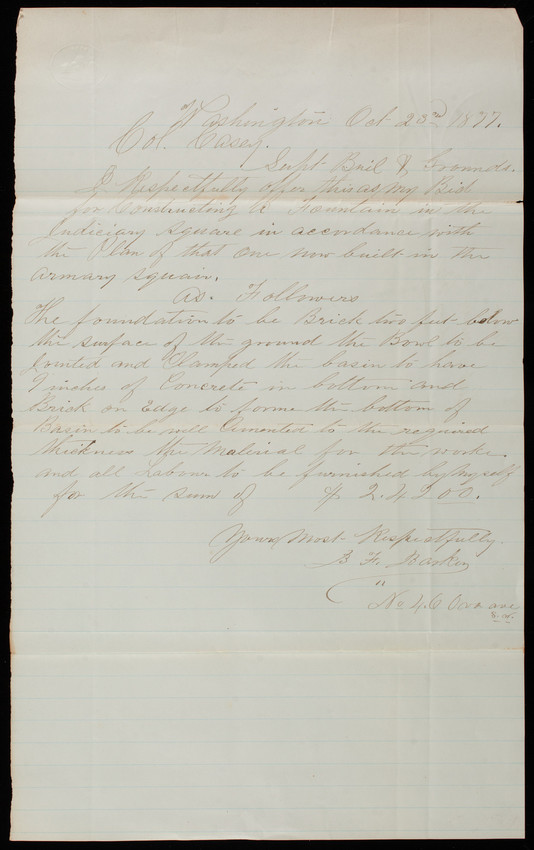 Washington Oct 23rd 1877.
Col. Casey.
Supt Buil & Grounds.
I Respectfully offer this as my Bid
for Constructing a Fountain in the
Judiciary Square in accordance with
the Plan of that one now built in the
armary squair.
As. Followers
The foundation to be Brick two feet below
the surface of the ground the Bowl to be
Jointed and Clamped the basin to have
inches of Concrete in bottom and
Brick on Edge to forme the bottom of
Basin to be well Cemented to the required
thickness the Material for the worke
and all Labour to be furnished by myself
for the sum of $ 242.00.
Yours Most Respectfully.
B F. Barker
No 46 ave